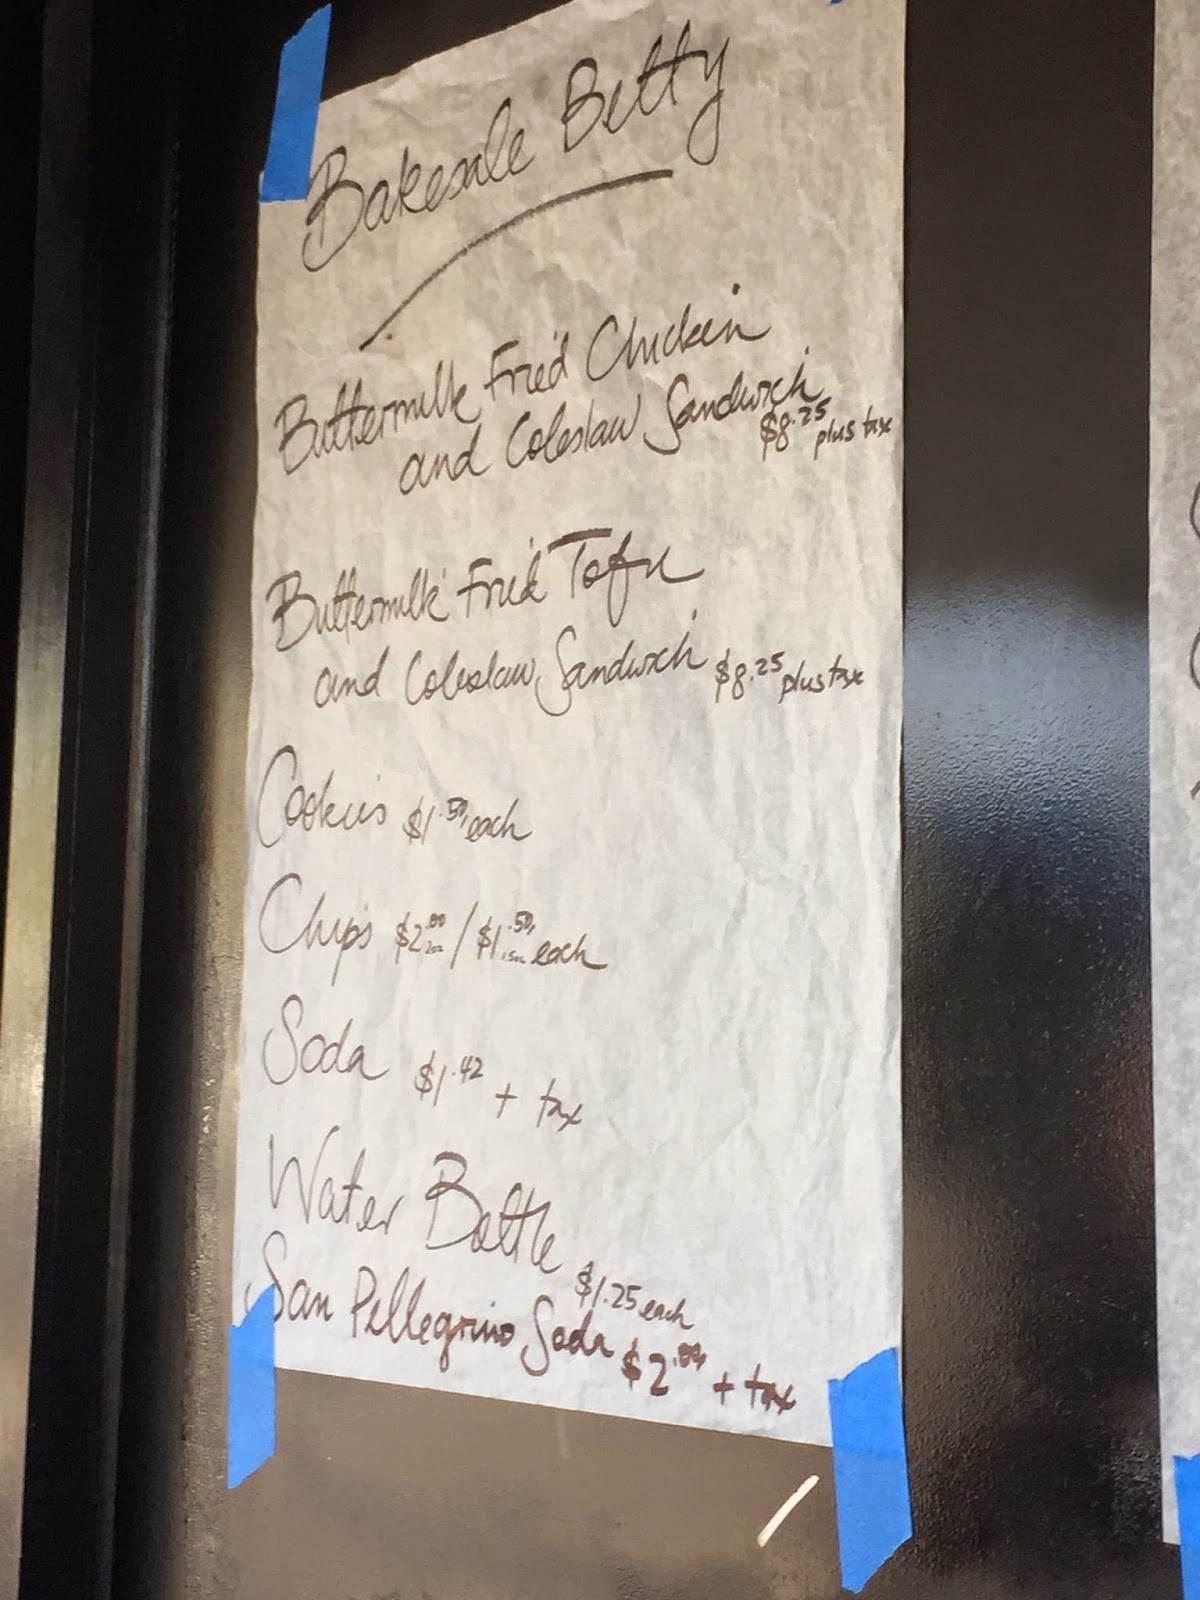 Bakesale Betty
Buttermilk Fried Chicken
and Coleslaw Sandwich
$8.25 plus tax
Buttermilk Fried Tofu
and Coleslaw Sandwich $8.25 plus tax
Cookies $1.50 each
Chips $2.00 2oz / $1.50 1.5oz each
Soda $1.42 + tax
Water Bottle
$1.25 each
San Pellegrino Soda $2.00 + tax